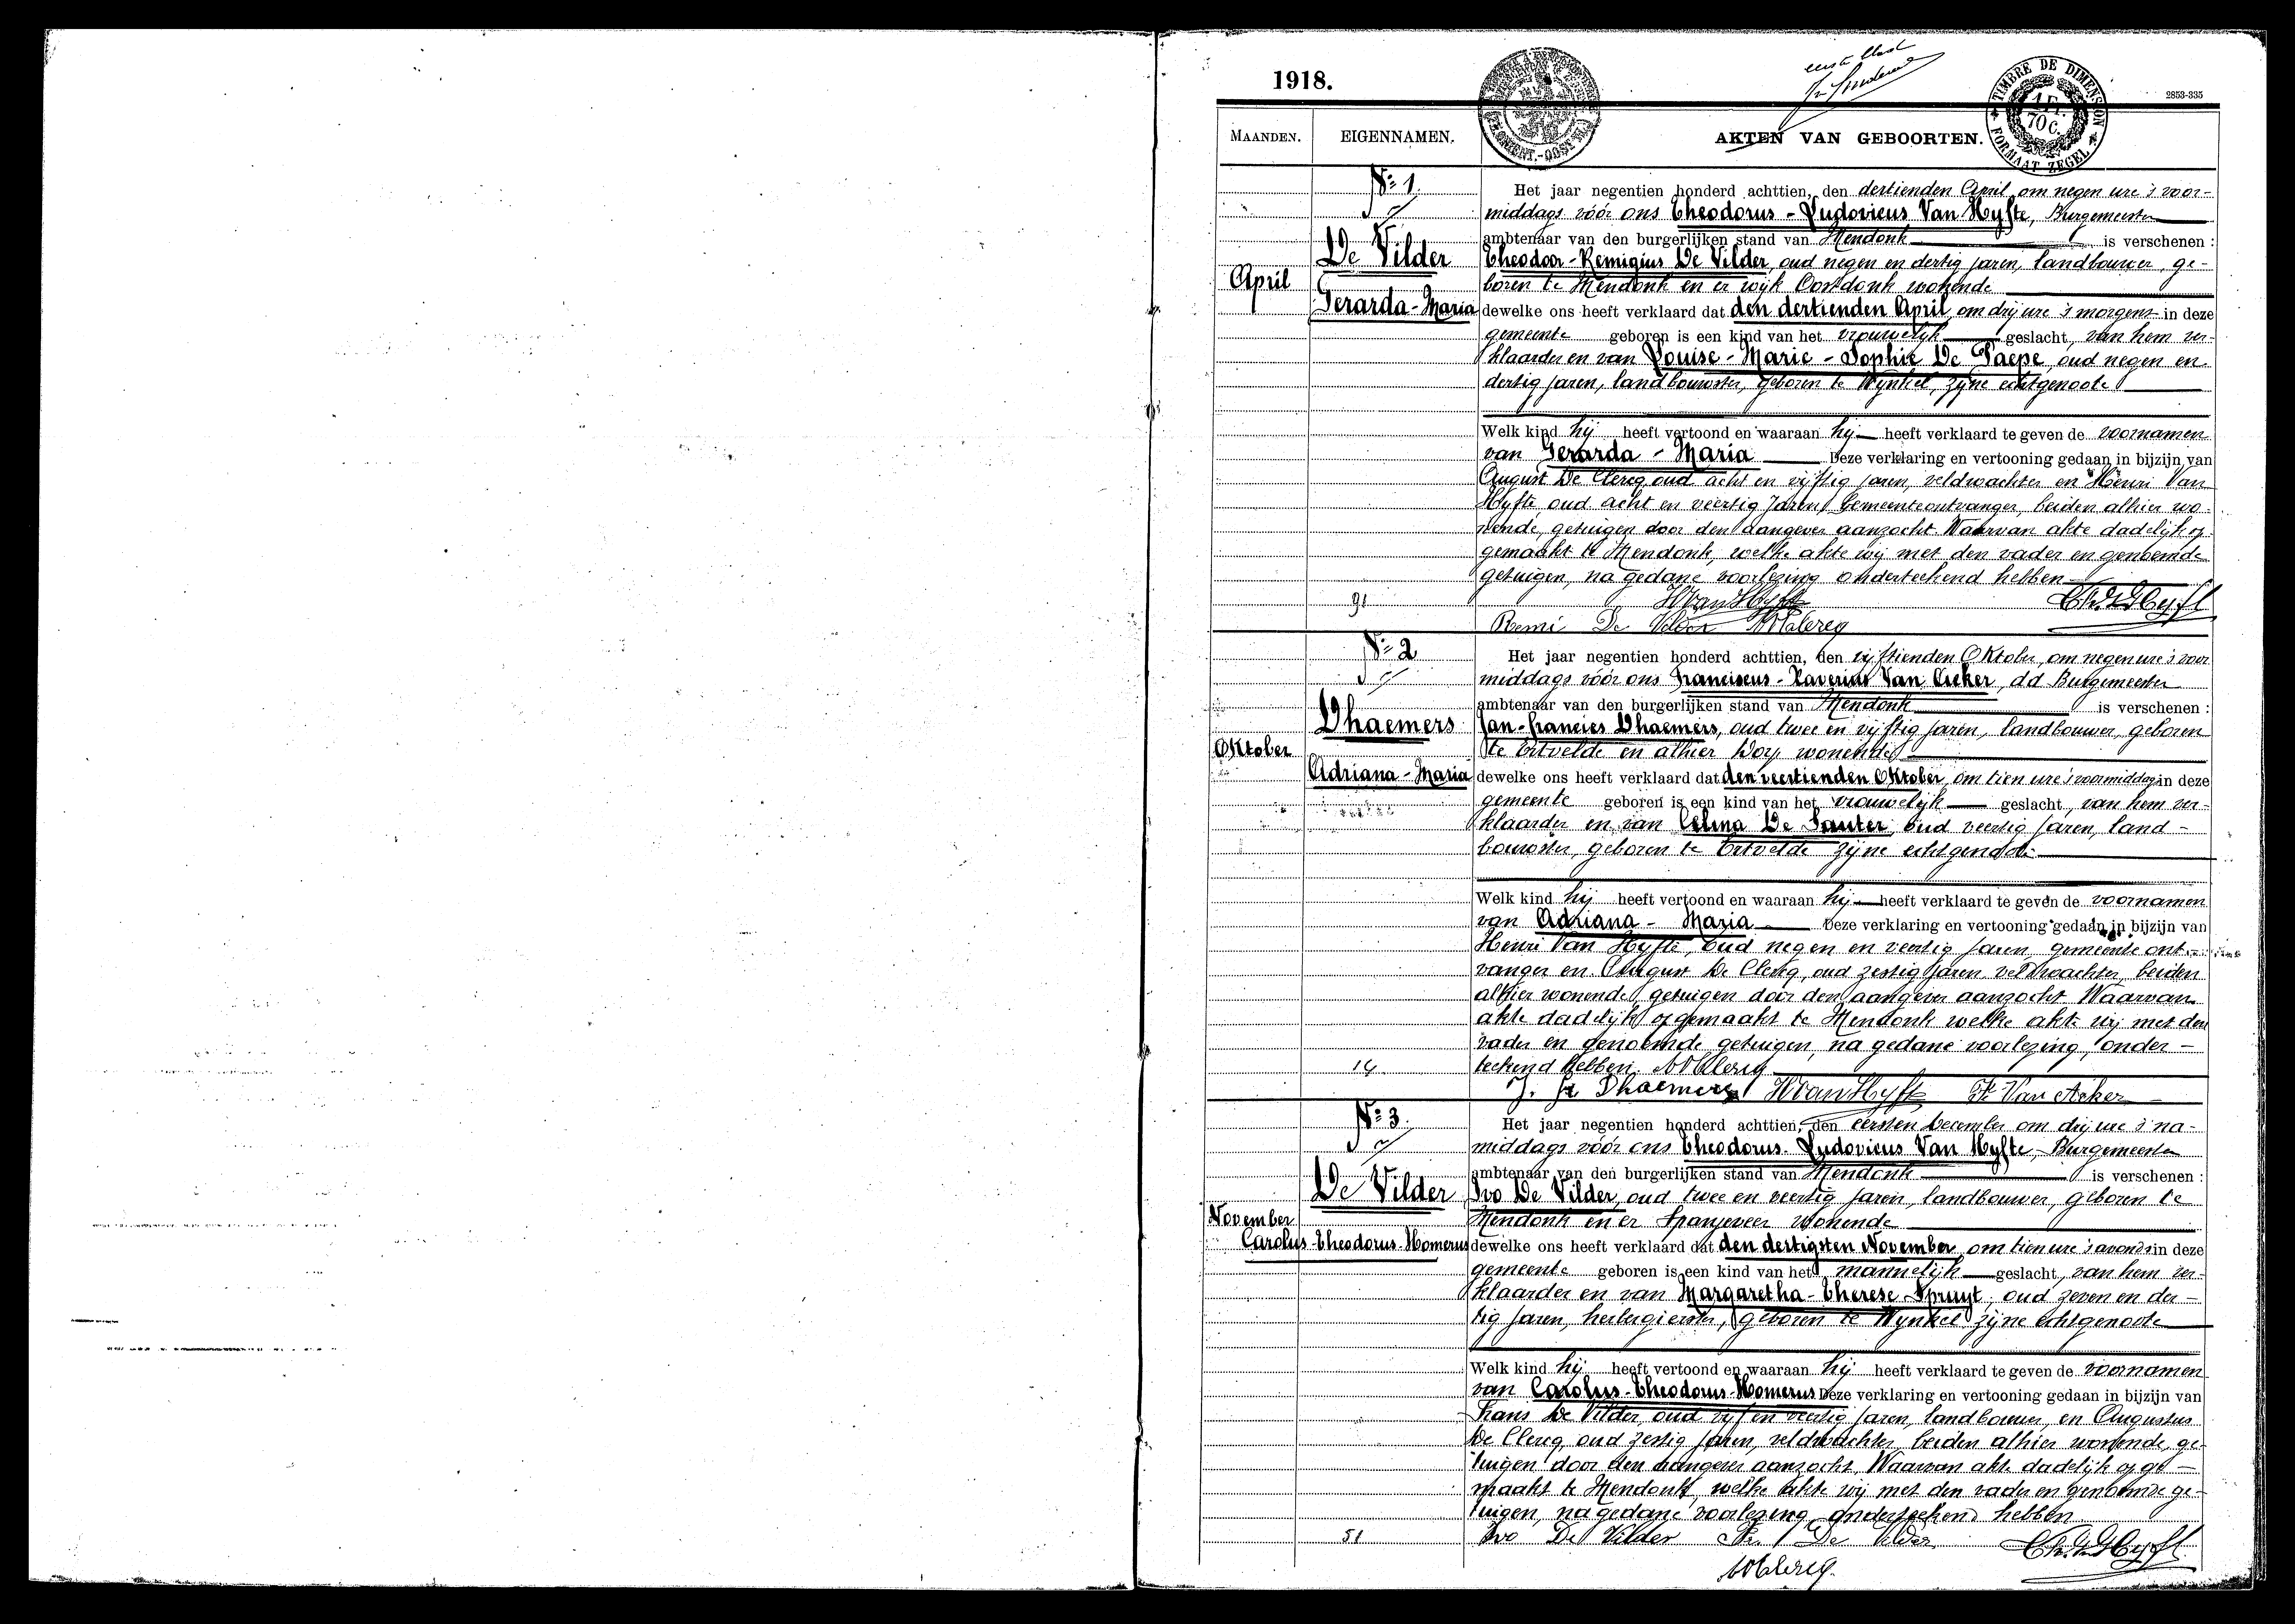 1918.
eerste blad
TIMBRE DE DIMENSION
FORMAAT ZEGEL
1 Fr.
70 C.
2853-335
MAANDEN.
EIGENNAMEN.
AKTEN VAN GEBOORTEN.
Nº 1.
De Vilder
April
Gerarda-Maria
Het jaar negentien honderd achttien, den dertienden April, om negen ure 's voor-
middags vóór ons Theodorus-Ludovicus Van Hyfte, Burgemeester
ambtenaar van den burgerlijken stand van Mendonk is verschenen :
Theodoor-Remigius De Vilder, oud negen en dertig jaren, landbouwer, ge-
boren te Mendonk en er wijk Oostdonk wonende
dewelke ons heeft verklaard dat den dertienden April, om drij ure 's morgens in deze
gemeente geboren is een kind van het vrouwelijk geslacht, van hem ver-
klaarder en van Louise-Marie-Sophie De Paepe, oud negen en
dertig jaren, landbouwster, geboren te Wynkel, zijne echtgenoote
Welk kind hij heeft vertoond en waaraan hij heeft verklaard te geven de voornamen
van Gerarda-Maria Deze verklaring en vertooning gedaan in bijzijn van
August De Clercq, oud acht en vijftig jaren, veldwachter en Henri Van
Hyfte, oud acht en veertig jaren, Gemeenteontvanger, beiden alhier wo-
nende, getuigen door den aangever aanzocht. Waarvan akte dadelijk op-
gemaakt te Mendonk, welke akte wij met den vader en genoemde
getuigen, na gedane voorlezing onderteekend hebben
H Van Hyfte
Remi De Vilder
Nº 2
Dhaemers
Oktober
Adriana-Maria
Het jaar negentien honderd achttien, den vijftienden Oktober, om negen ure 's voor
middags vóór ons Franciscus-Xaverius Van Acker, dd Burgemeester
ambtenaar van den burgerlijken stand van Mendonk is verschenen :
Jan-Francies Dhaemers, oud twee en vijftig jaren, landbouwer, geboren
te Ertvelde en alhier Dorp wonende
dewelke ons heeft verklaard dat den veertienden Oktober, om tien ure 's voormiddags in deze
gemeente geboren is een kind van het vrouwelijk geslacht, van hem ver-
klaarder en van Celina De Sauter, oud veertig jaren, land-
bouwster, geboren te Ertvelde zijne echtgenoote
Welk kind hij heeft vertoond en waaraan hij heeft verklaard te geven de voornamen
van Adriana-Maria Deze verklaring en vertooning gedaan in bijzijn van
Henri Van Hyfte, oud negen en veertig jaren, gemeente ont-
vanger en August De Clercq, oud zestig jaren veldwachter, beiden
alhier wonende, getuigen door den aangever aanzocht Waarvan
akte dadelijk opgemaakt te Mendonk welke akte wij met den
vader en genoemde getuigen, na gedane voorlezing, onder-
14
teekend hebben.
J. Fr Dhaemers H Van Hyfte Fr Van Acker
Nº 3.
De Vilder
November
Carolus-Theodorus-Homerus
Het jaar negentien honderd achttien, den eersten December om drij ure 's na-
middags vóór ons Theodorus-Ludovicus Van Hyfte, Burgemeester
ambtenaar van den burgerlijken stand van Mendonk is verschenen :
Ivo De Vilder, oud twee en veertig jaren, landbouwer, geboren te
Mendonk en er Spanjeveer wonende
dewelke ons heeft verklaard dat den dertigsten November, om tien ure 's avonds in deze
gemeente geboren is een kind van het mannelijk geslacht, van hem ver-
klaarder en van Margaretha-Therese Spruyt, oud zeven en der-
tig jaren, herbergierster, geboren te Wynkel zijne echtgenoote
Welk kind hij heeft vertoond en waaraan hij heeft verklaard te geven de voornamen
van Carolus-Theodorus-Homerus Deze verklaring en vertooning gedaan in bijzijn van
Frans De Vilder, oud vijf en veertig jaren, landbouwer, en Augustus
De Clercq, oud zestig jaren, veldwachter, beiden alhier wonende, ge-
tuigen door den aangever aanzocht, Waarvan akte dadelijk opge-
maakt te Mendonk, welke akte wij met den vader en genoemde ge-
tuigen, na gedane voorlezing, onderteekend hebben
51
Ivo De Vilder Fr. De Vilder